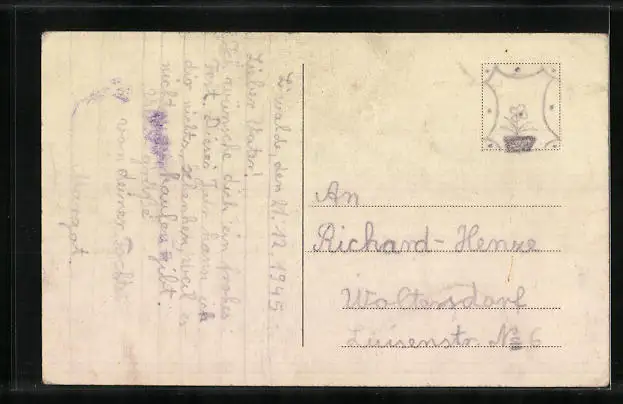 Zi.walde, den 21.12.1945.
Lieber Vater!
Ich wünsche dich ein frohes
Fest. Dieses Jahr kann ich
dir nichts schenken, weil es
nicht zu kaufen gibt.
grüße
von deiner Tochter
Margot.
An
Richard-Henze
Woltersdorf
Luisenstr. № 6